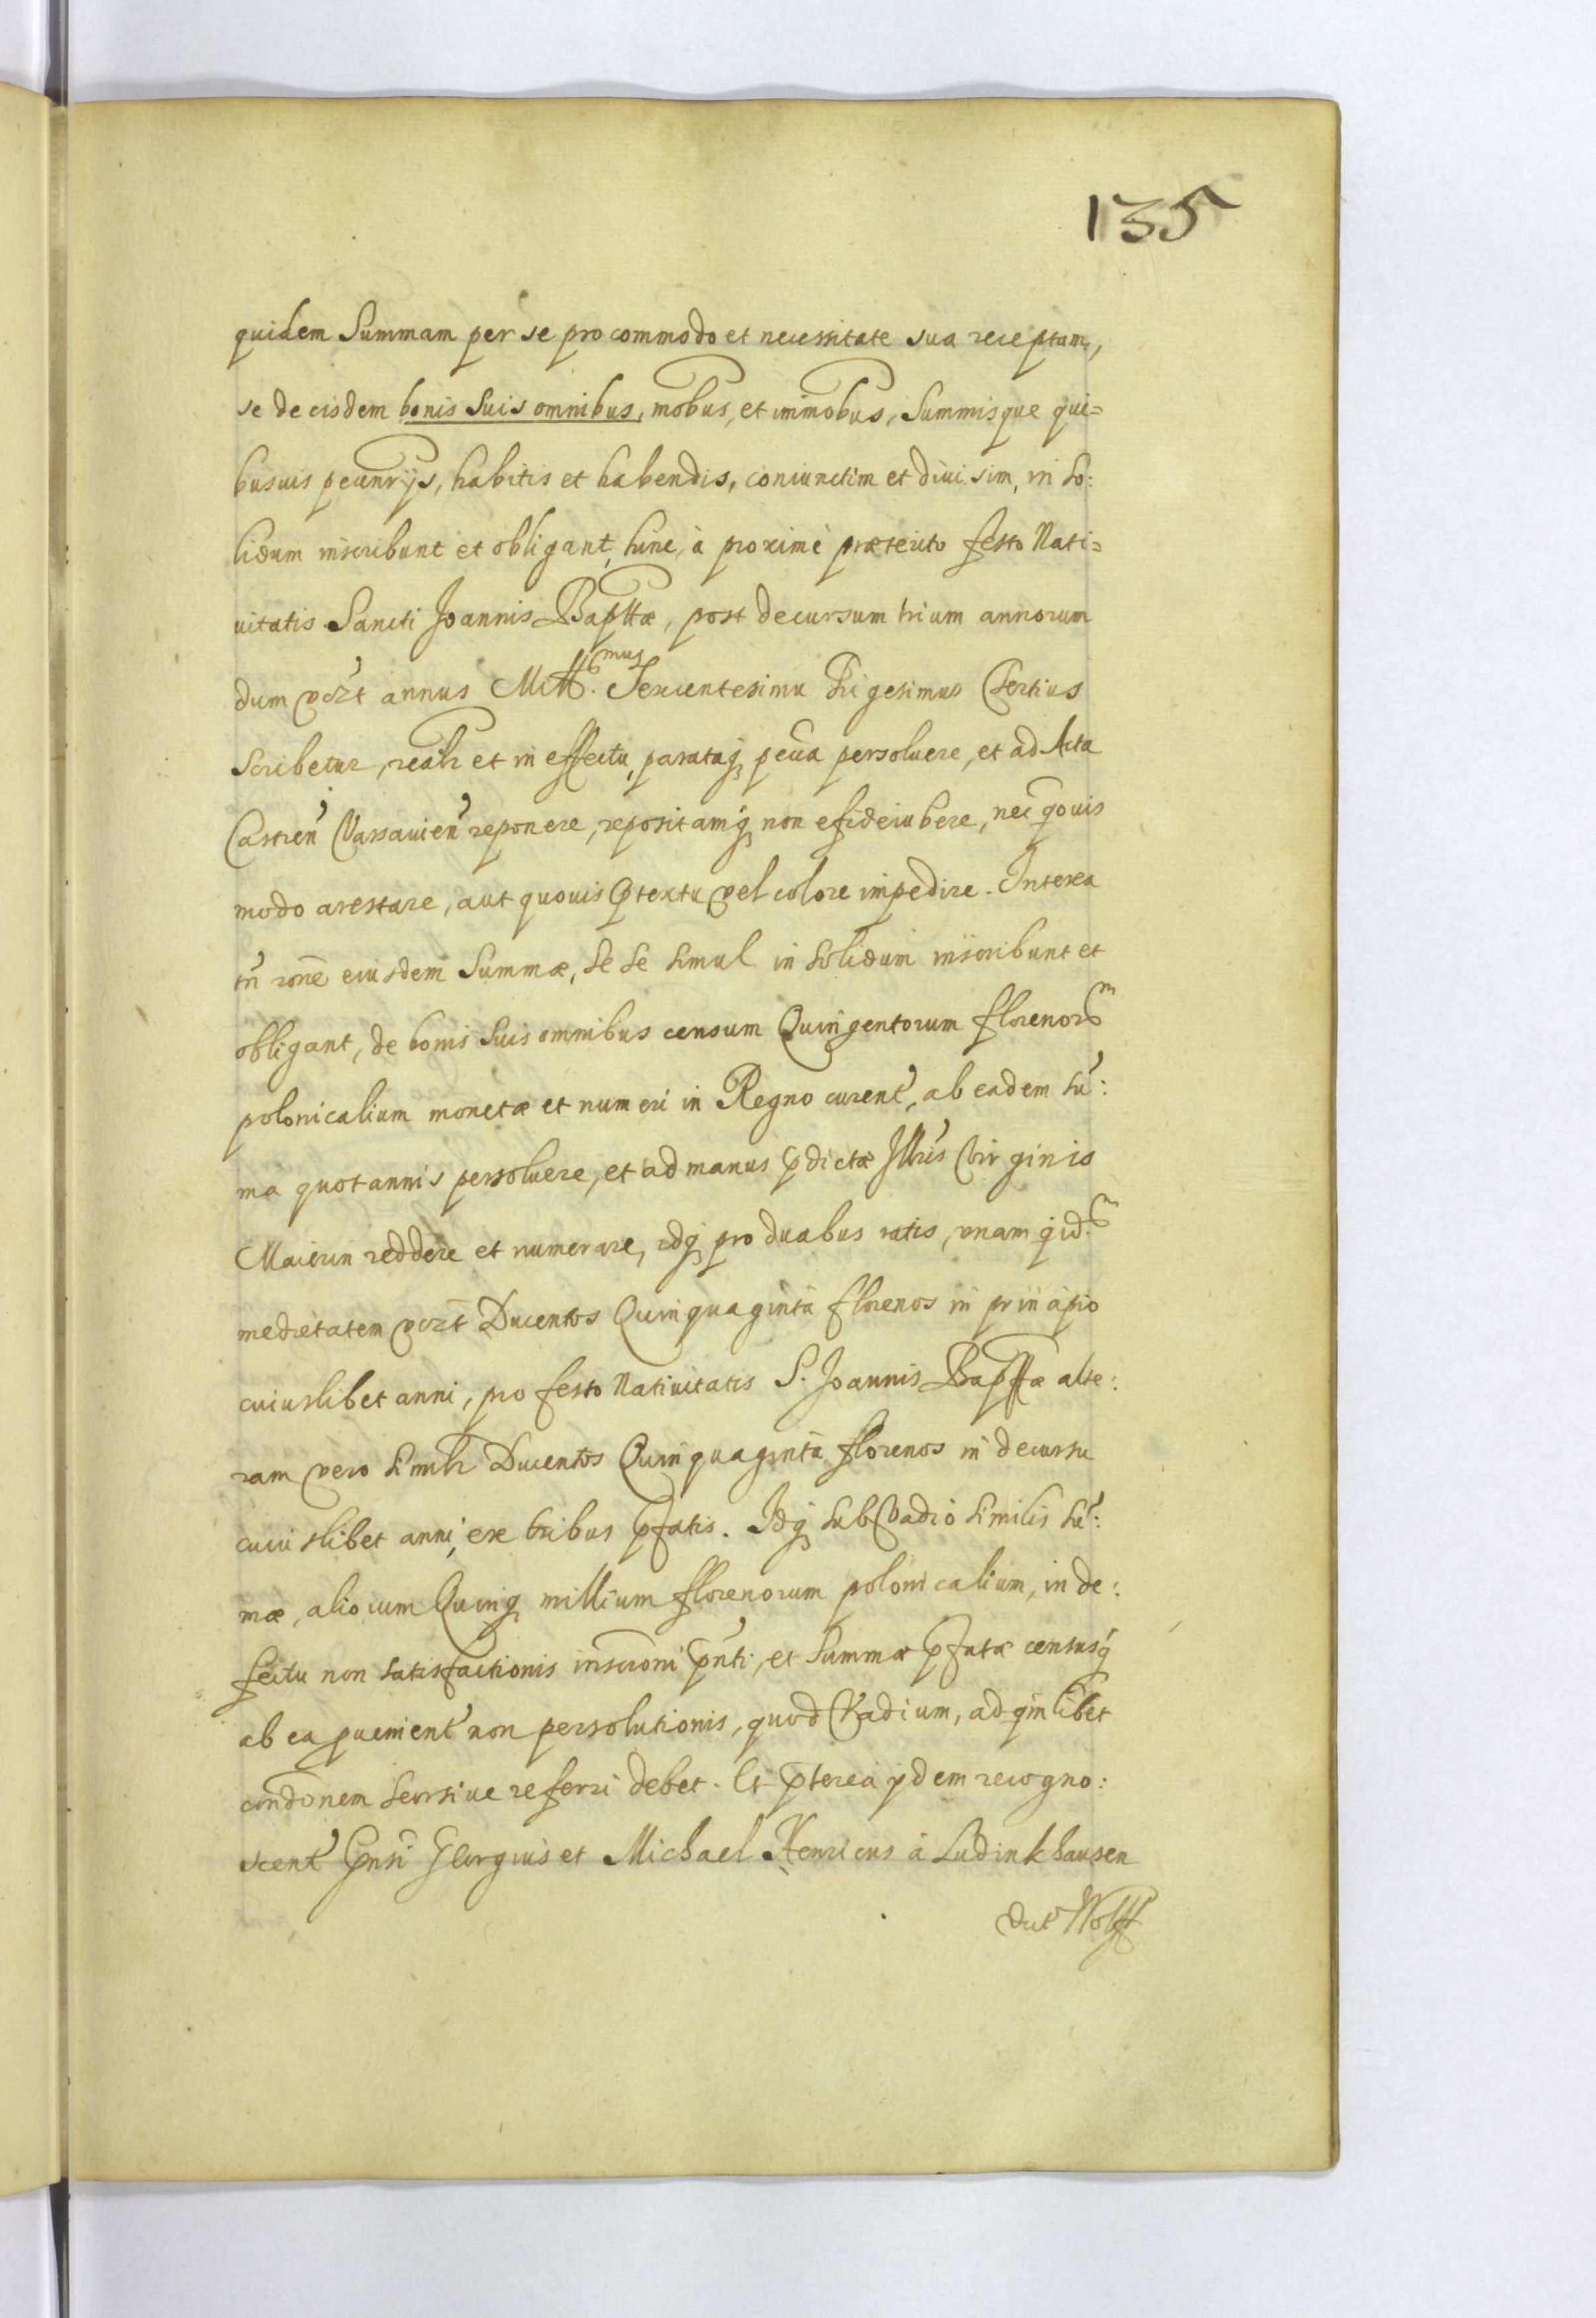 135
quidem Summam per se pro commodo et necessitate sua receptam,
se de eisdem bonis suis omnibus, mobus, et immobus, Summisque qui=
busuis pecunrijs, habitis et habendis, coniunctim et diuisim, in so:
lidum inscribunt et obligant, hinc, à proximè præterito festo Nati=
uitatis Sancti Joannis Bapttæ, post decursum trium annorum
dum vozt annus Mill.mus Sexcentesimu Trigesimus Tertius
scribetur, realr et in effectu, parataq pecua persoluere, et ad Acta
Castren Varsauien reponere, repositamq non efideiubere, nec qouis
modo arestare, aut quouis ptextu vel colore impedire. Interea
tn rone eiusdem Summæ, se se simul in solidum inscribunt et
obligant, de bonis suis omnibus censum Quingentorum florenorm
polonicalium monetæ et numeri in Regno curent, ab eadem su:
ma quotannis persoluere, et ad manus pdictæ Illris Virginis
Maierin reddere et numerare, idq pro duabus ratis, vnam qid.m
medietatem vozt Ducentos Quinquaginta florenos in principio
cuiuslibet anni, pro festo Natiuitatis S. Joannis Bapttæ alte:
ram vero similr Ducentos Quinquaginta florenos in decursu
cuiuslibet anni, ex tribus pfatis. Idq sub Vadio similis su:
mæ, aliorum Quinq millium florenorum polonicalium, in de:
fectu non satisfactionis inscroni pnti, et Summæ pfatæ censusq
ab ea puenient non persolutionis, quod Vadium, ad qmlibet
condonem seorsiue referri debet. Et pterea ijdem recogno:
scent Gnsi Georgius et Michael Henricus à Ludinkhausen
dict Wolff